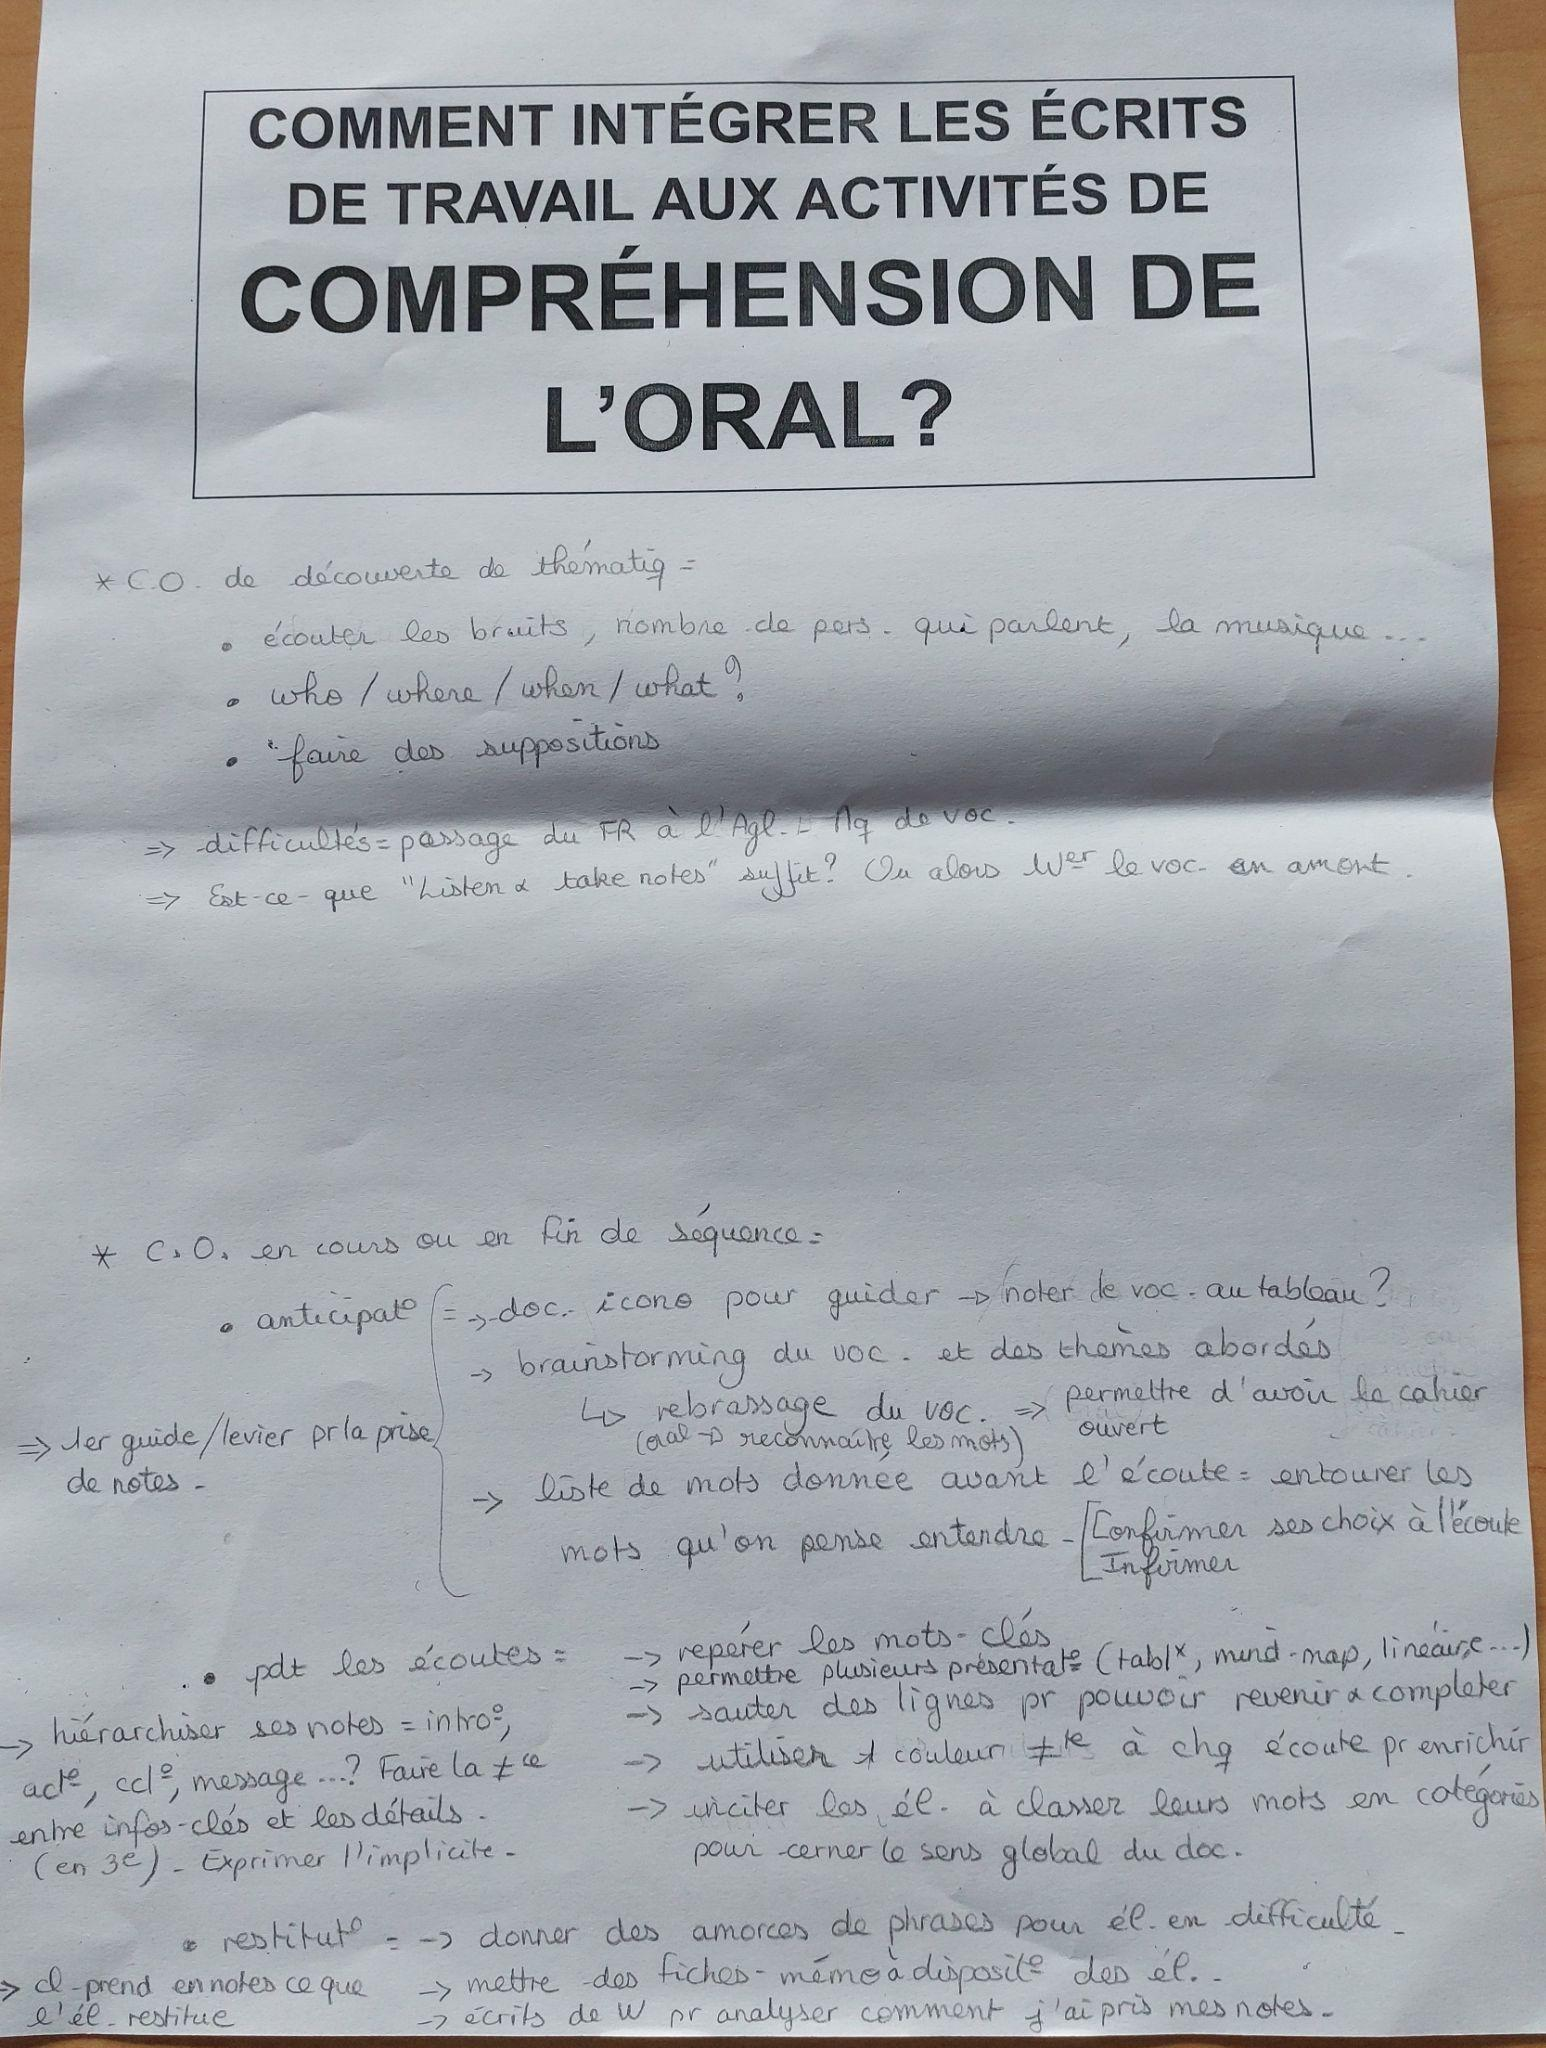 COMMENT INTÉGRER LES ÉCRITS
DE TRAVAIL AUX ACTIVITÉS DE
COMPRÉHENSION DE
L'ORAL?
* C.O. de découverte de thématiq =
• écouter les bruits, nombre de pers. qui parlent, la musique...
• who / where / when / what?
• faire des suppositions
=> difficultés = passage du FR à l'Agl. Mq de voc.
=> Est-ce-que "Listen & take notes" suffit? Ou alors Wer le voc. en amont.
* C.O. en cours ou en fin de séquence =
• anticipato = -> doc. icono pour guider -> noter le voc. au tableau?
-> brainstorming du voc. et des thèmes abordés
↳ rebrassage du voc. => permettre d'avoir le cahier
(oral -> reconnaître les mots) ouvert
=> 1er guide/levier pr la prise
de notes -
-> liste de mots donnée avant l'écoute = entourer les
mots qu'on pense entendre - [Confirmer ses choix à l'écoute
[Infirmer
• pdt les écoutes = -> repérer les mots-clés
-> permettre plusieurs présentato (tablx, mind-map, linéaire...)
-> sauter des lignes pr pouvoir revenir & compléter
-> utiliser 1 couleur ≠te à chq écoute pr enrichir
-> inciter les él. à classer leurs mots en catégories
pour cerner le sens global du doc.
-> hiérarchiser ses notes = introo,
acto, cclo, message...? Faire la ≠ce
entre infos-clés et les détails.
(en 3e) - Exprimer l'implicite -
• restituto = -> donner des amorces de phrases pour él. en difficulté -
-> mettre des fiches-mémo à disposito des él. -
-> écrits de W pr analyser comment j'ai pris mes notes -
-> cl prend en notes ce que
l'él. restitue